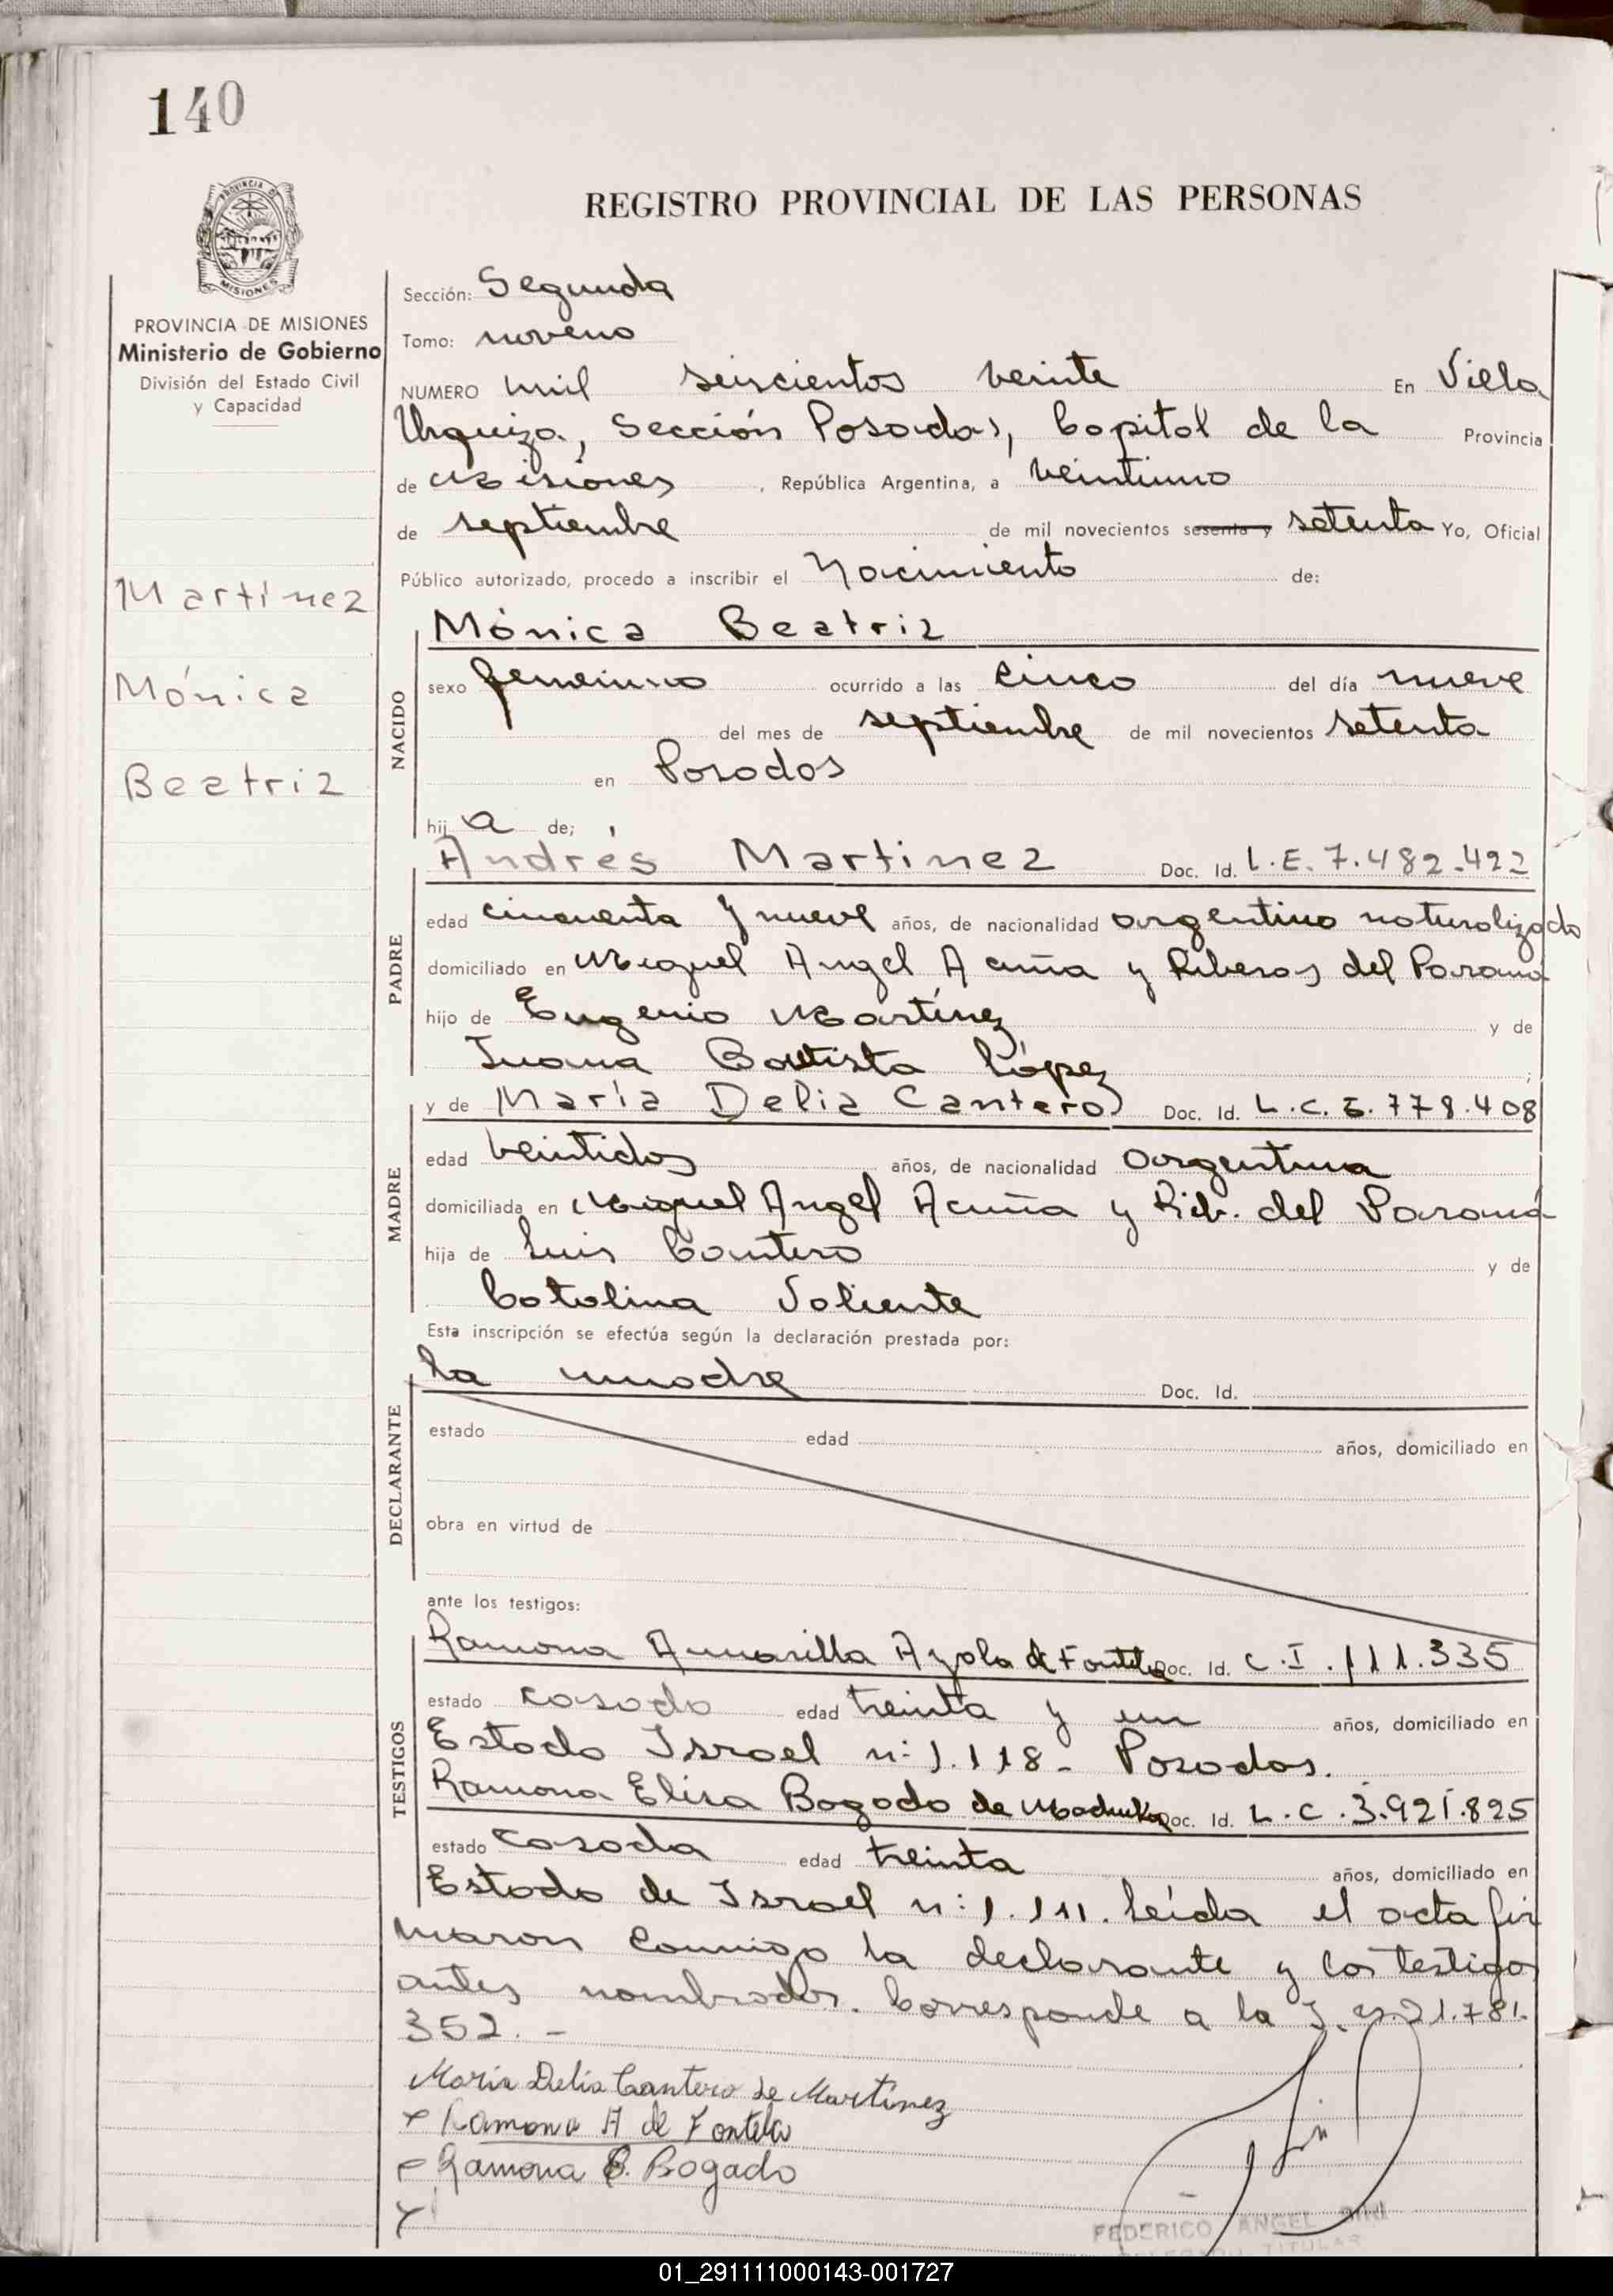 140
REGISTRO PROVINCIAL DE LAS PERSONAS
PROVINCIA DE MISIONES
Ministerio de Gobierno
División del Estado Civil
y Capacidad
Martínez
Mónica
Beatriz
Sección: Segunda
Tomo: noveno
NUMERO mil seiscientos veinte En Villa
Urquiza, Sección Posadas, Capital de la Provincia
de Misiones, República Argentina, a veintiuno
de septiembre de mil novecientos sesenta y setenta Yo, Oficial
Público autorizado, procedo a inscribir el Nacimiento de:
NACIDO
Mónica Beatriz
sexo femenino ocurrido a las cinco del día nueve
del mes de septiembre de mil novecientos setenta
en Posadas
hij a de;
PADRE
Andrés Martinez Doc. Id. L.E. 7.482.422
edad cincuenta y nueve años, de nacionalidad argentino naturalizado
domiciliado en Miguel Angel Acuña y Riberas del Paraná
hijo de Eugenio Martínez y de
Juana Bautista López
MADRE
y de María Delia Cantero Doc. Id. L.C. 6.778.408
edad veintidos años, de nacionalidad argentina
domiciliada en Miguel Angel Acuña y Rib. del Paraná
hija de Luis Cantero y de
Catalina Valiente
Esta inscripción se efectúa según la declaración prestada por:
DECLARANTE
la madre Doc. Id.
estado edad años, domiciliado en
obra en virtud de
ante los testigos:
TESTIGOS
Ramona Amarilla Ayala de Fontela Doc. Id. C.I. 111.335
estado casada edad treinta y un años, domiciliado en
Estado Israel n: 1.118- Posadas.
Ramona Elisa Bogado de Doc. Id. L.C. 3.921.825
estado casada edad treinta años, domiciliado en
Estado de Israel n: 1.111. Leída el acta fir
maron conmigo la declarante y los testigos
antes nombrados. Corresponde a la 21.781.
352.-
María Delia Cantero de Martínez
Ramona A de Fontela
Ramona E. Bogado
FEDERICO ANGEL
TITULAR
MISIONES
01_291111000143-001727